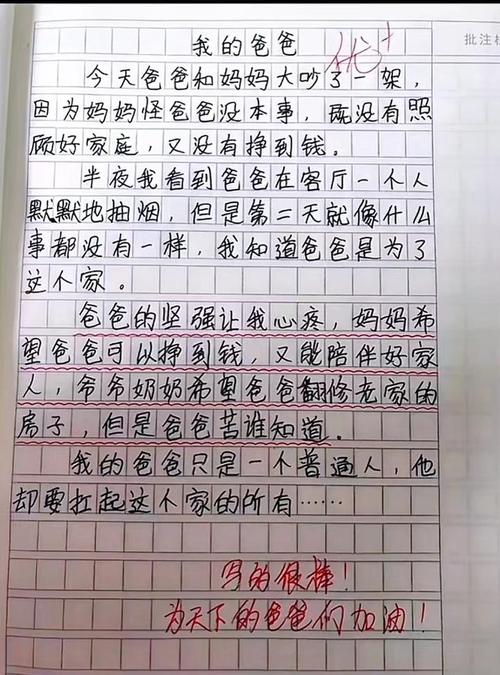 我的爸爸
优+
批注
今天爸爸和妈妈大吵了一架，
因为妈妈怪爸爸没本事，既没有照
顾好家庭，又没有挣到钱。
半夜我看到爸爸在客厅一个人
默默地抽烟，但是第二天就像什么
事都没有一样，我知道爸爸是为了
这个家。
爸爸的坚强让我心疼，妈妈希
望爸爸可以挣到钱，又能陪伴好家
人，爷爷奶奶希望爸爸翻修老家的
房子，但是爸爸苦谁知道。
我的爸爸只是一个普通人，他
却要扛起这个家的所有……
写的很棒！
为天下的爸爸们加油！